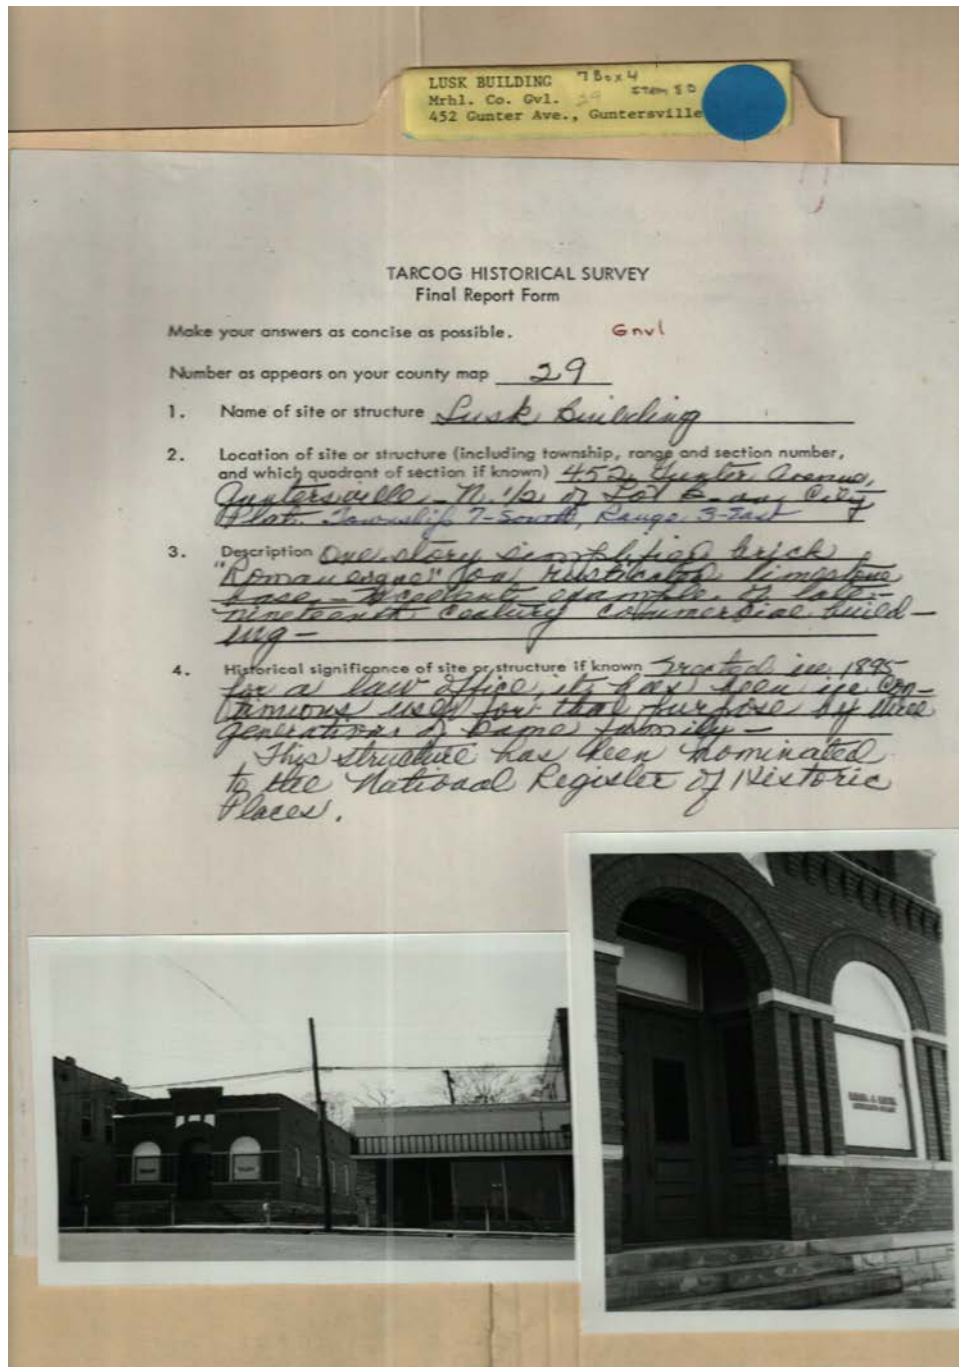 LUSK BUILDING 7 Box 4
Mrhl. Co. Gvl. 29 Item 50
452 Gunter Ave., Guntersville
TARCOG HISTORICAL SURVEY
Final Report Form
Make your answers as concise as possible. Gnvl
Number as appears on your county map 29
1. Name of site or structure Lusk Building
2. Location of site or structure (including township, range and section number,
and which quadrant of section if known) 452 Gunter Avenue,
Guntersville - N. 1/2 of Lot 8 - City
Plat. Township 7-South, Range 3-East
3. Description One story simplified brick
"Romanesque" on rusticated limestone
base - Excellent example of late-
nineteenth century commercial build-
ing -
4. Historical significance of site or structure if known Erected in 1895
for a law office, it has been in con-
tinuous use for that purpose by three
generations of same family -
This structure has been nominated
to the National Register of Historic
Places.